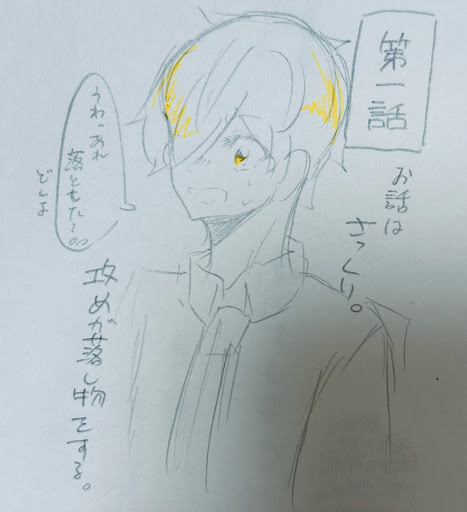 第一話
お話は
さっくり。
うわっあれ
落ともた〜
どしよ
攻めが落し物をする。